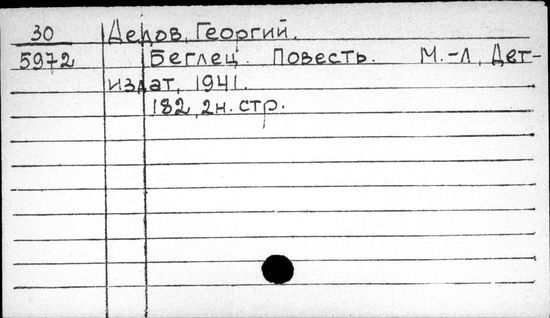 30 Дедов, Георгий.
5972 Беглец. Повесть. М.-Л, Дет-
издат, 1941.
182, 2н. стр.